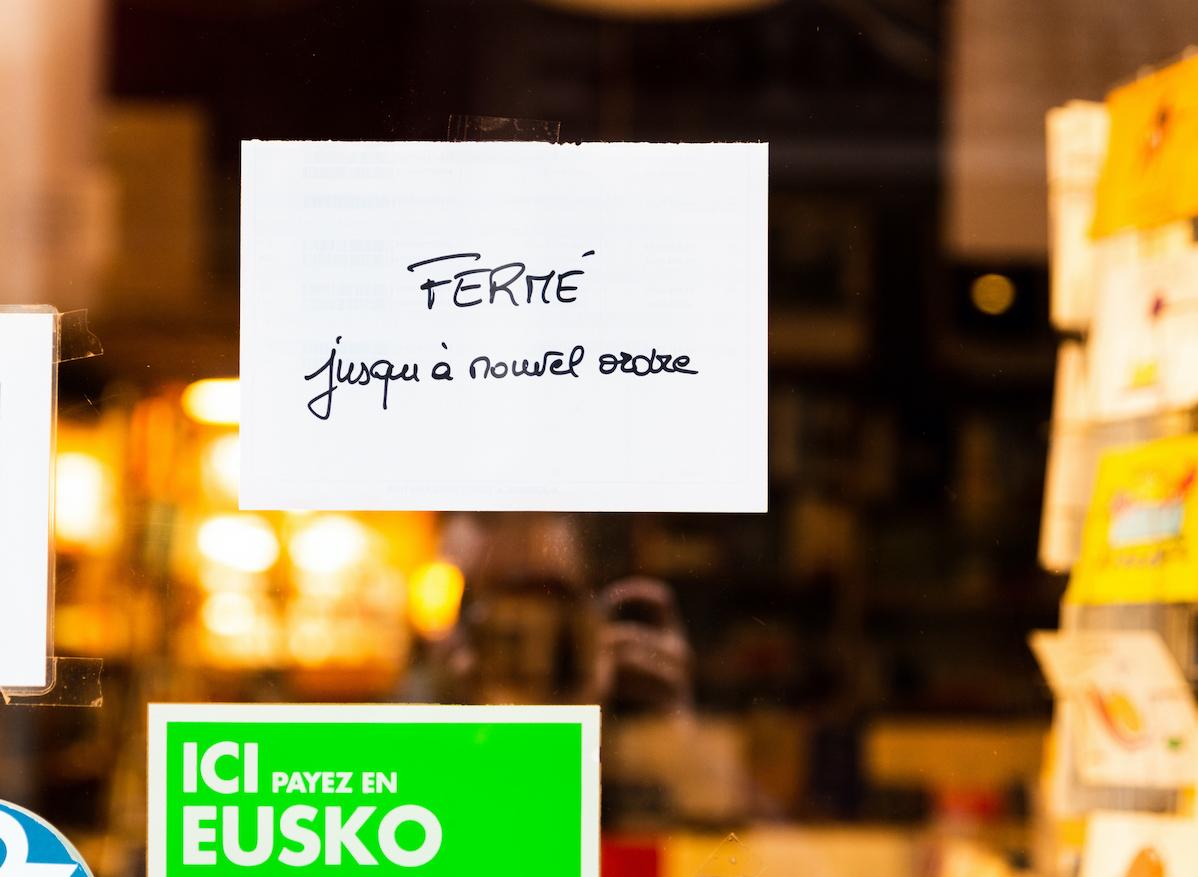 FERMÉ
jusqu'à nouvel ordre
ICI PAYEZ EN
EUSKO